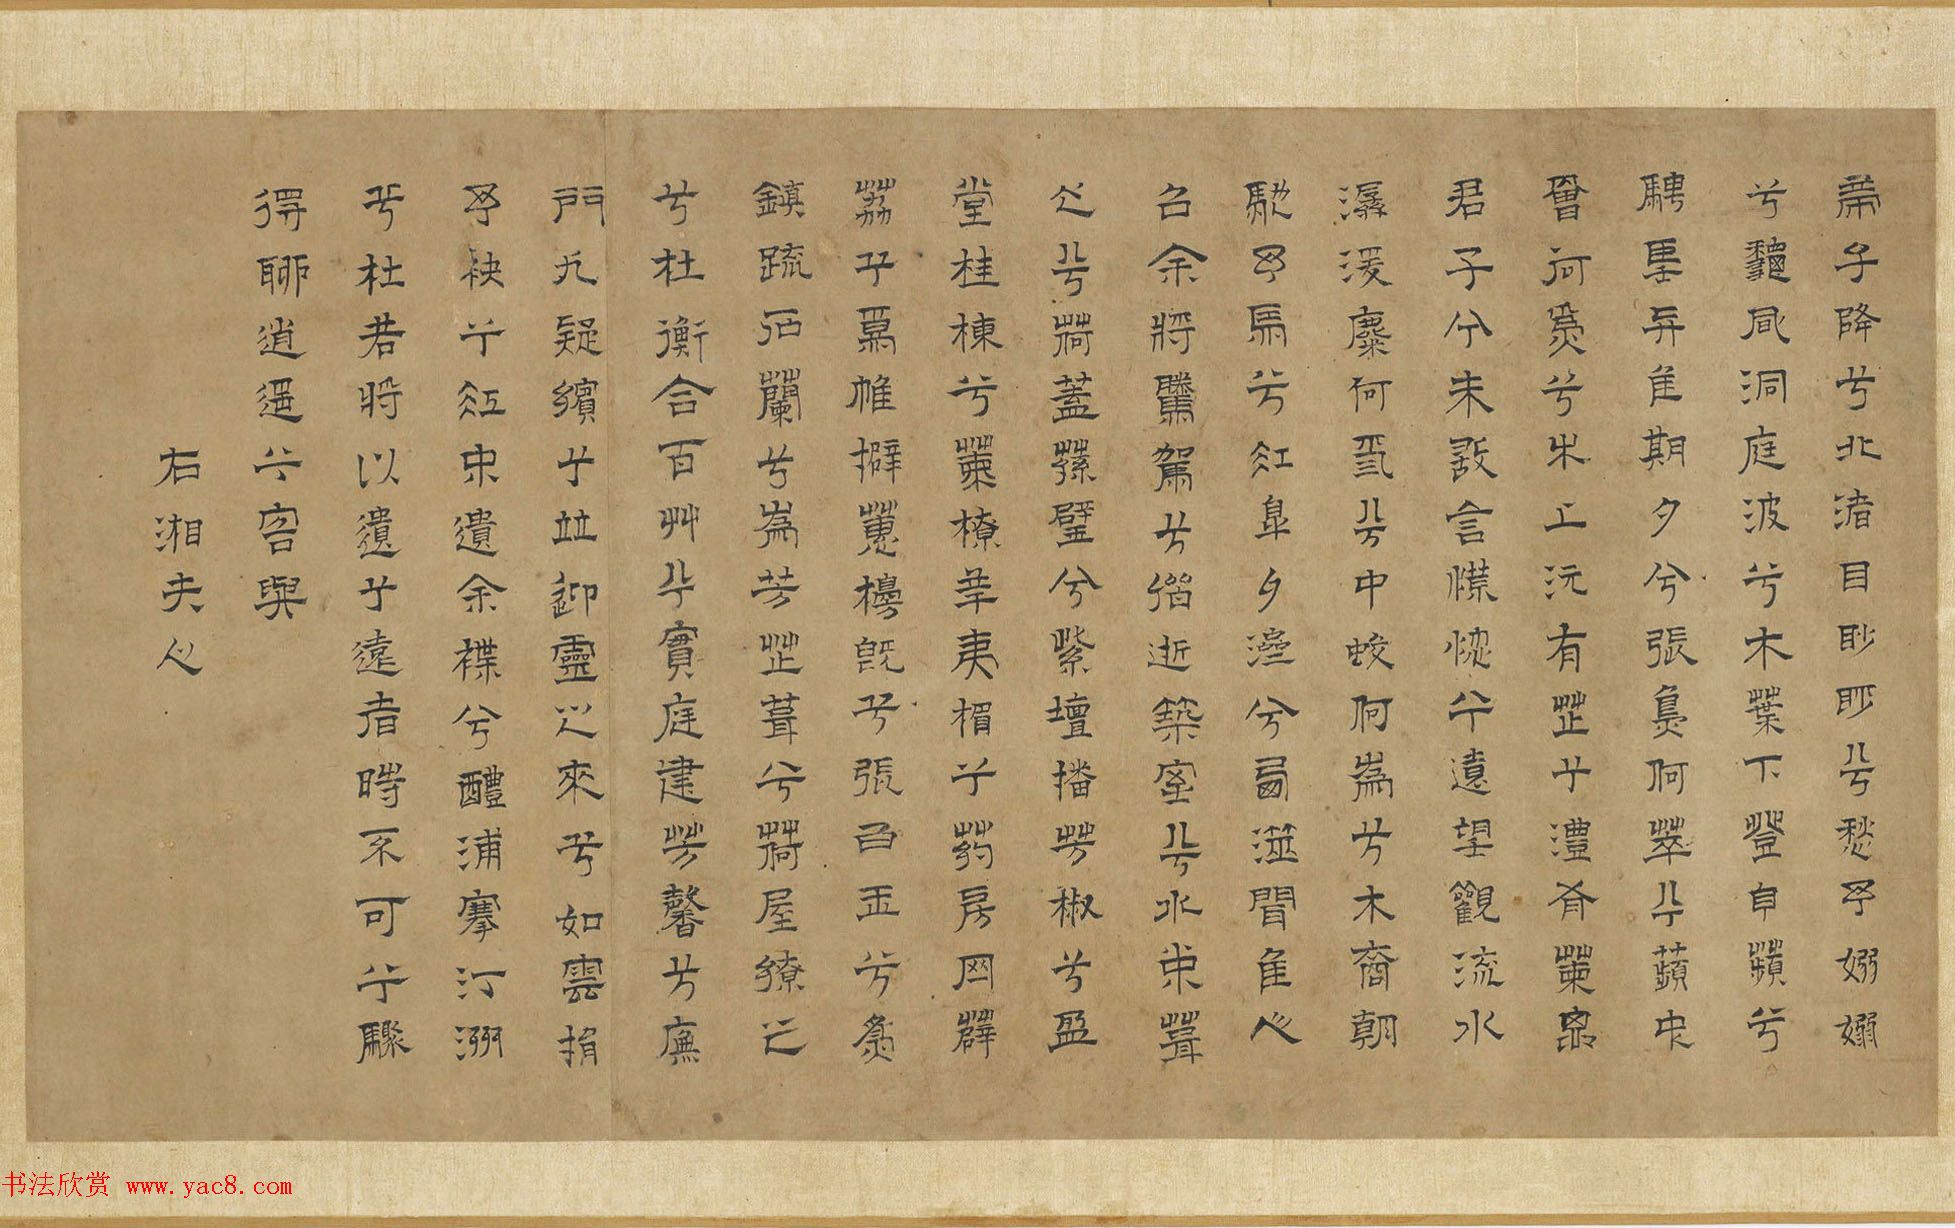 帝子降兮北渚目眇眇兮愁予嫋嫋
兮龝風洞庭波兮木葉下登白薠兮
騁望與佳期夕兮張鳥何萃兮蘋中
罾何為兮木上沅有芷兮澧有蘭思
君子兮未敢言慌惚兮遠望觀流水
潺湲麋何食兮中蛟何為兮水裔朝
馳予馬兮江皋夕濟兮西澨聞佳人
召余將騰駕兮偕逝築室兮水中葺
之兮荷蓋蓀璧兮紫壇播芳椒兮盈
堂桂棟兮蘭橑辛夷楣兮葯房罔薜
荔兮為帷擗蕙櫋既兮張白玉兮為
鎮疏石蘭兮為芳芷葺兮荷屋繚之
兮杜衡合百艸兮實庭建芳馨兮廡
門九疑繽兮並迎靈之來兮如雲捐
予袂兮江中遺余褋兮醴浦搴汀洲
兮杜若將以遺兮遠者時不可兮驟
得聊逍遙兮容與
右湘夫人
书法欣赏 www.yac8.com